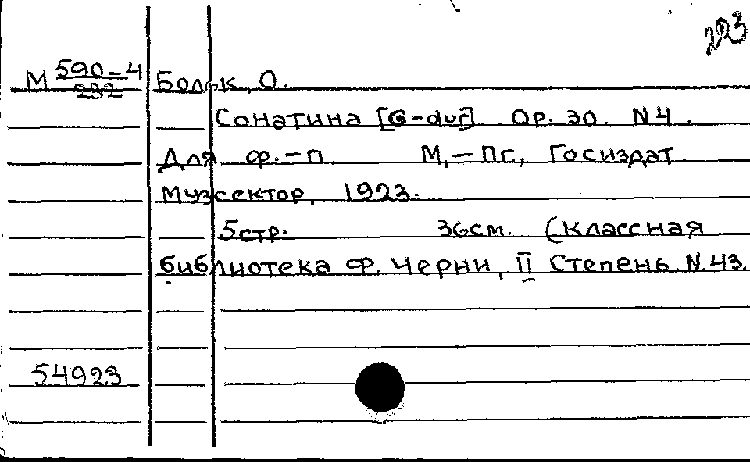 223
М 590-4 Болск, О.
232
Сонатина [G-dur] Ор. 30. N 4.
Для ф.-п М,-Пг, Госиздат
Музсектор, 1923.
5стр. 36см. (классная
библиотека Ф. Черни, II Степень N. 43.
54923